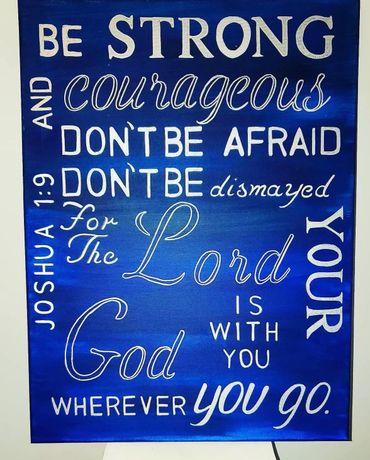 BE STRONG
AND courageous
DON'T BE AFRAID
DON'T BE dismayed
For The Lord YOUR
God IS WITH YOU
WHEREVER YOU GO.
JOSHUA 1:9